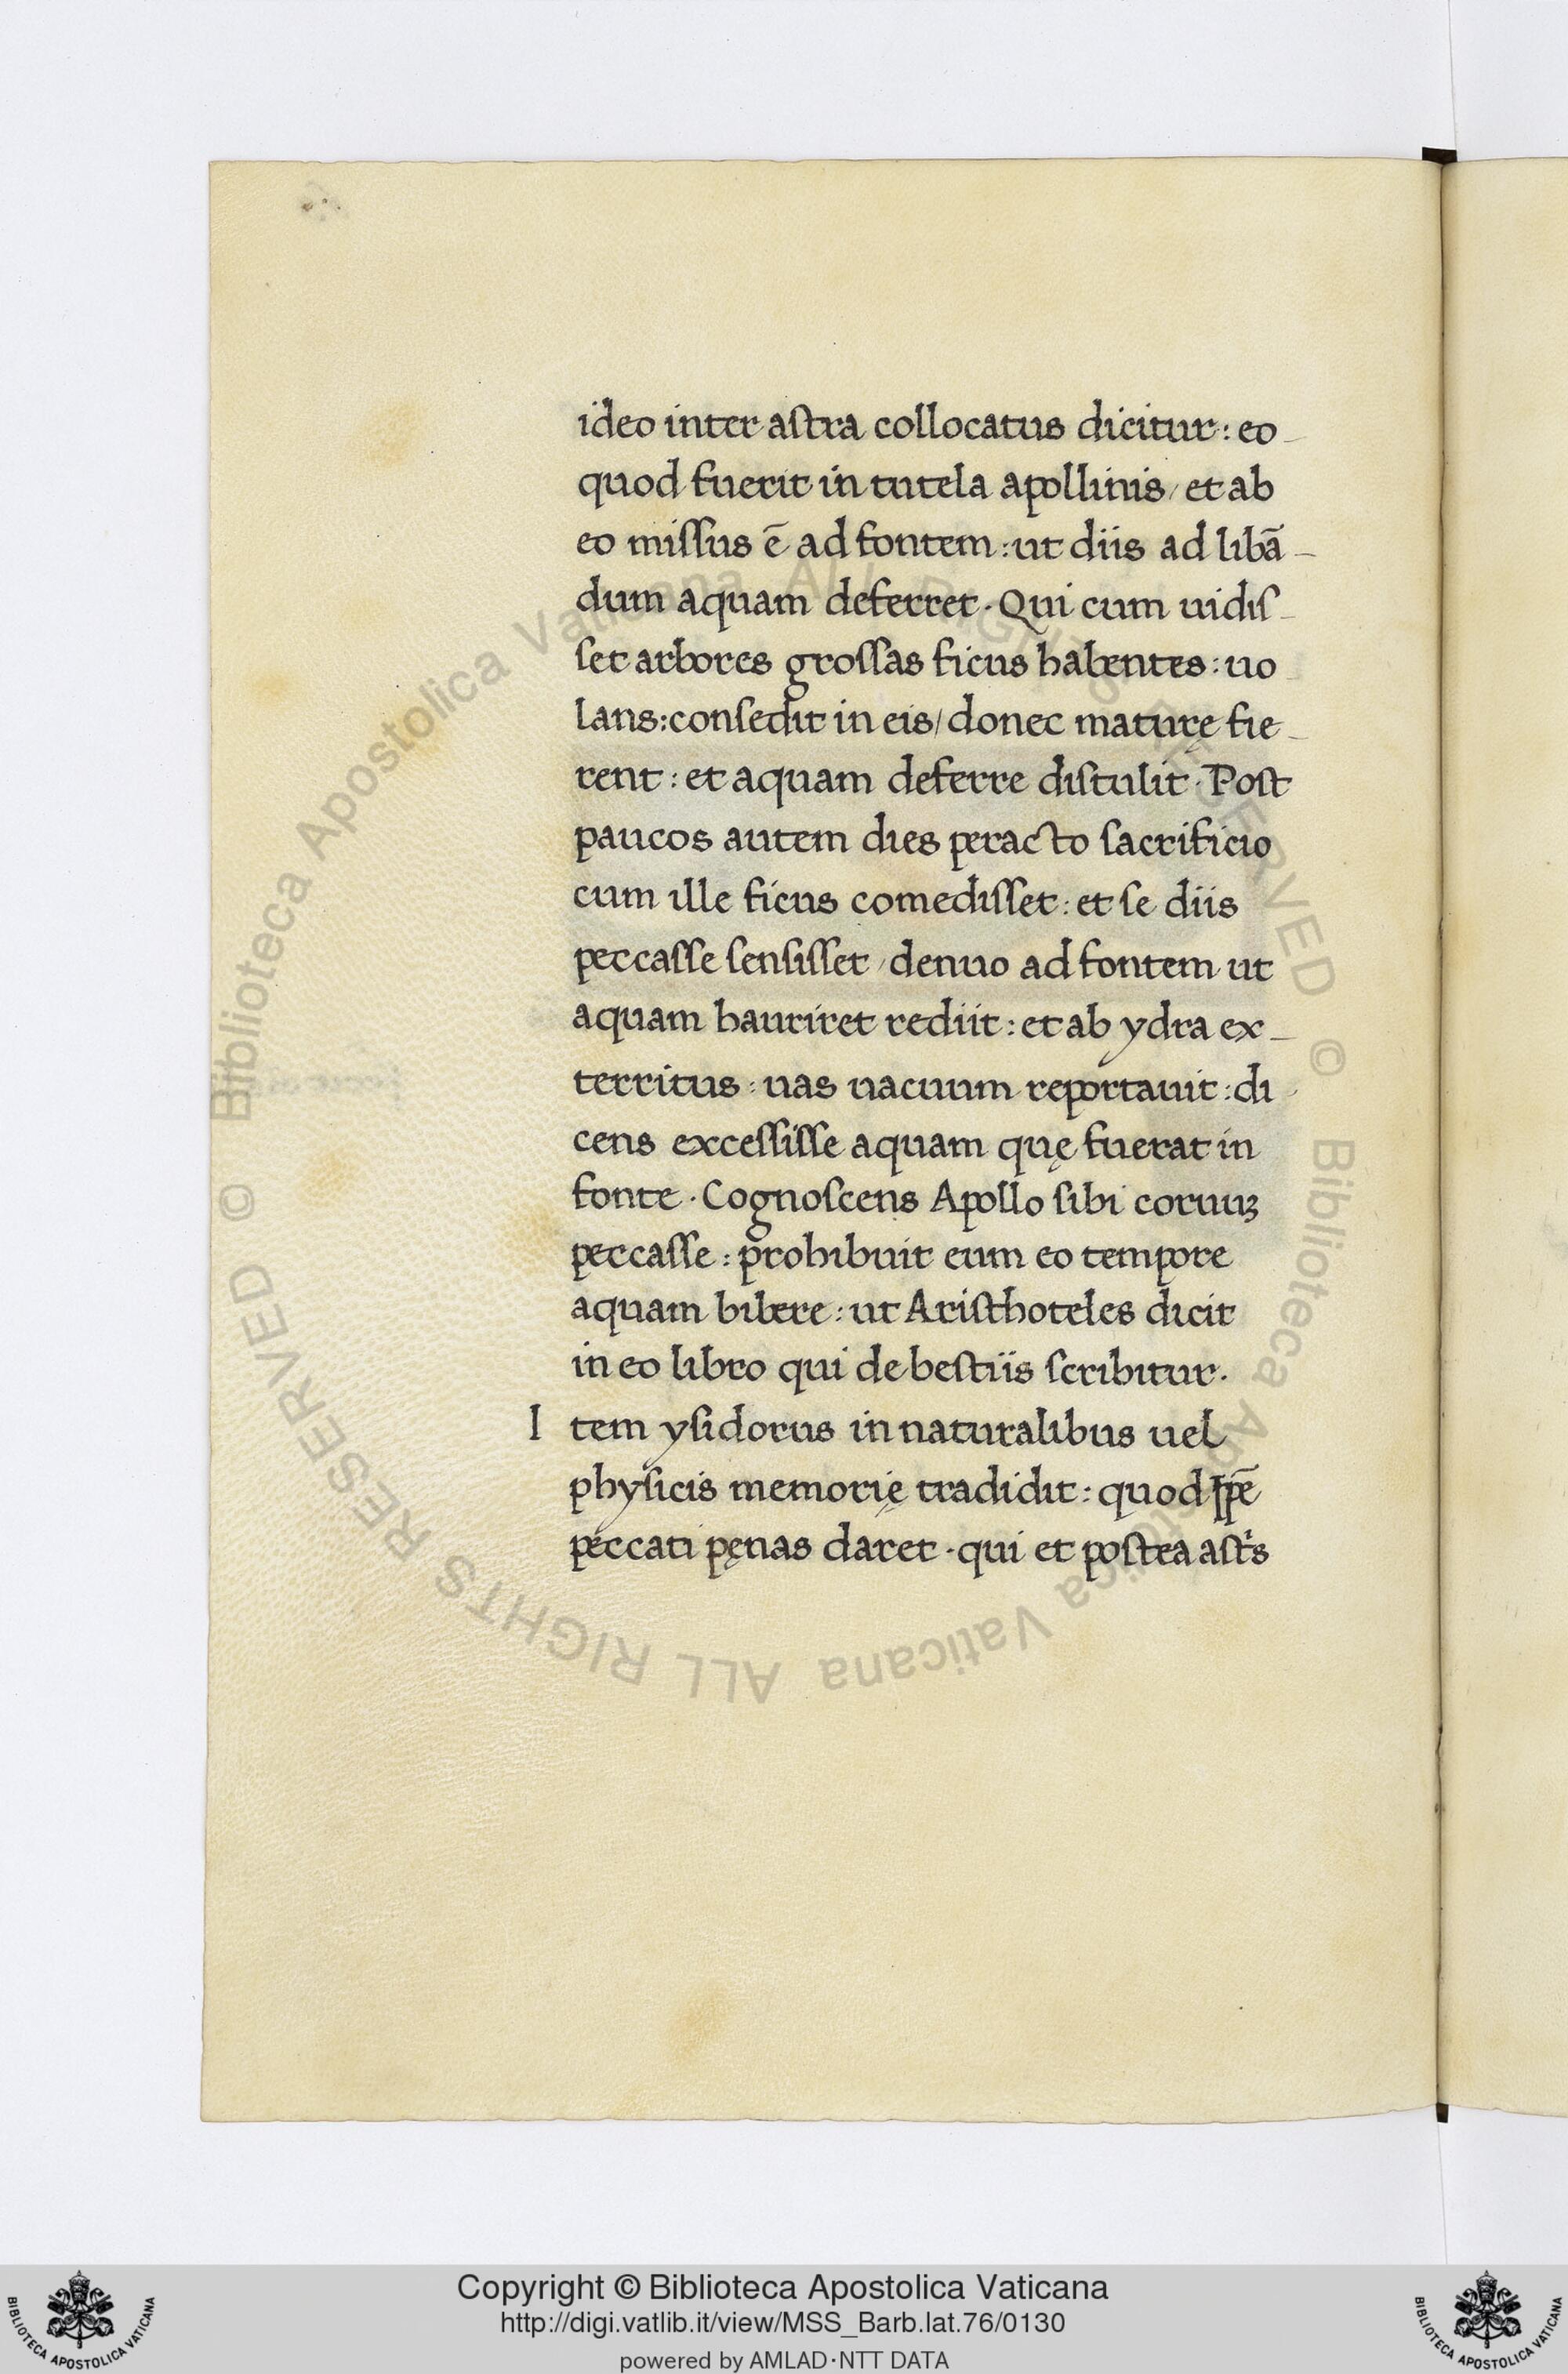 ideo inter aſtra collocatus dicitur: eo-
quod fuerit in tutela apollinis/ et ab
eo miſſus ē ad fontem: ut diis ad libā-
dum aquam deferret. Qui cum uidiſ-
ſet arbores groſſas ficus habentes: uo-
lans: conſedit in eis/ donec maturę fie-
rent: et aquam deferre diſtulit. Poſt
paucos autem dies peracto ſacrificio
cum ille ficus comediſſet: et ſe diis
peccaſſe ſenſiſſet/ denuo ad fontem ut
aquam hauriret rediit: et ab ydra ex-
territus: uas uacuum reportauit: di-
cens exceſſiſſe aquam quę fuerat in
fonte. Cognoſcens Apollo ſibi coruuꝫ
peccaſſe: prohibuit eum eo tempore
aquam bibere: ut Ariſthoteles dicit
in eo libro qui de beſtiis ſcribitur.
I tem yſidorus in naturalibus uel
phyſicis memorię tradidit: quod
peccati pęnas daret. qui et poſtea aſtͥs
© Biblioteca Apostolica Vaticana ALL RIGHTS RESERVED © Biblioteca Apostolica Vaticana ALL RIGHTS RESERVED
Copyright © Biblioteca Apostolica Vaticana
http://digi.vatlib.it/view/MSS_Barb.lat.76/0130
powered by AMLAD·NTT DATA
BIBLIOTECA APOSTOLICA VATICANA
BIBLIOTECA APOSTOLICA VATICANA